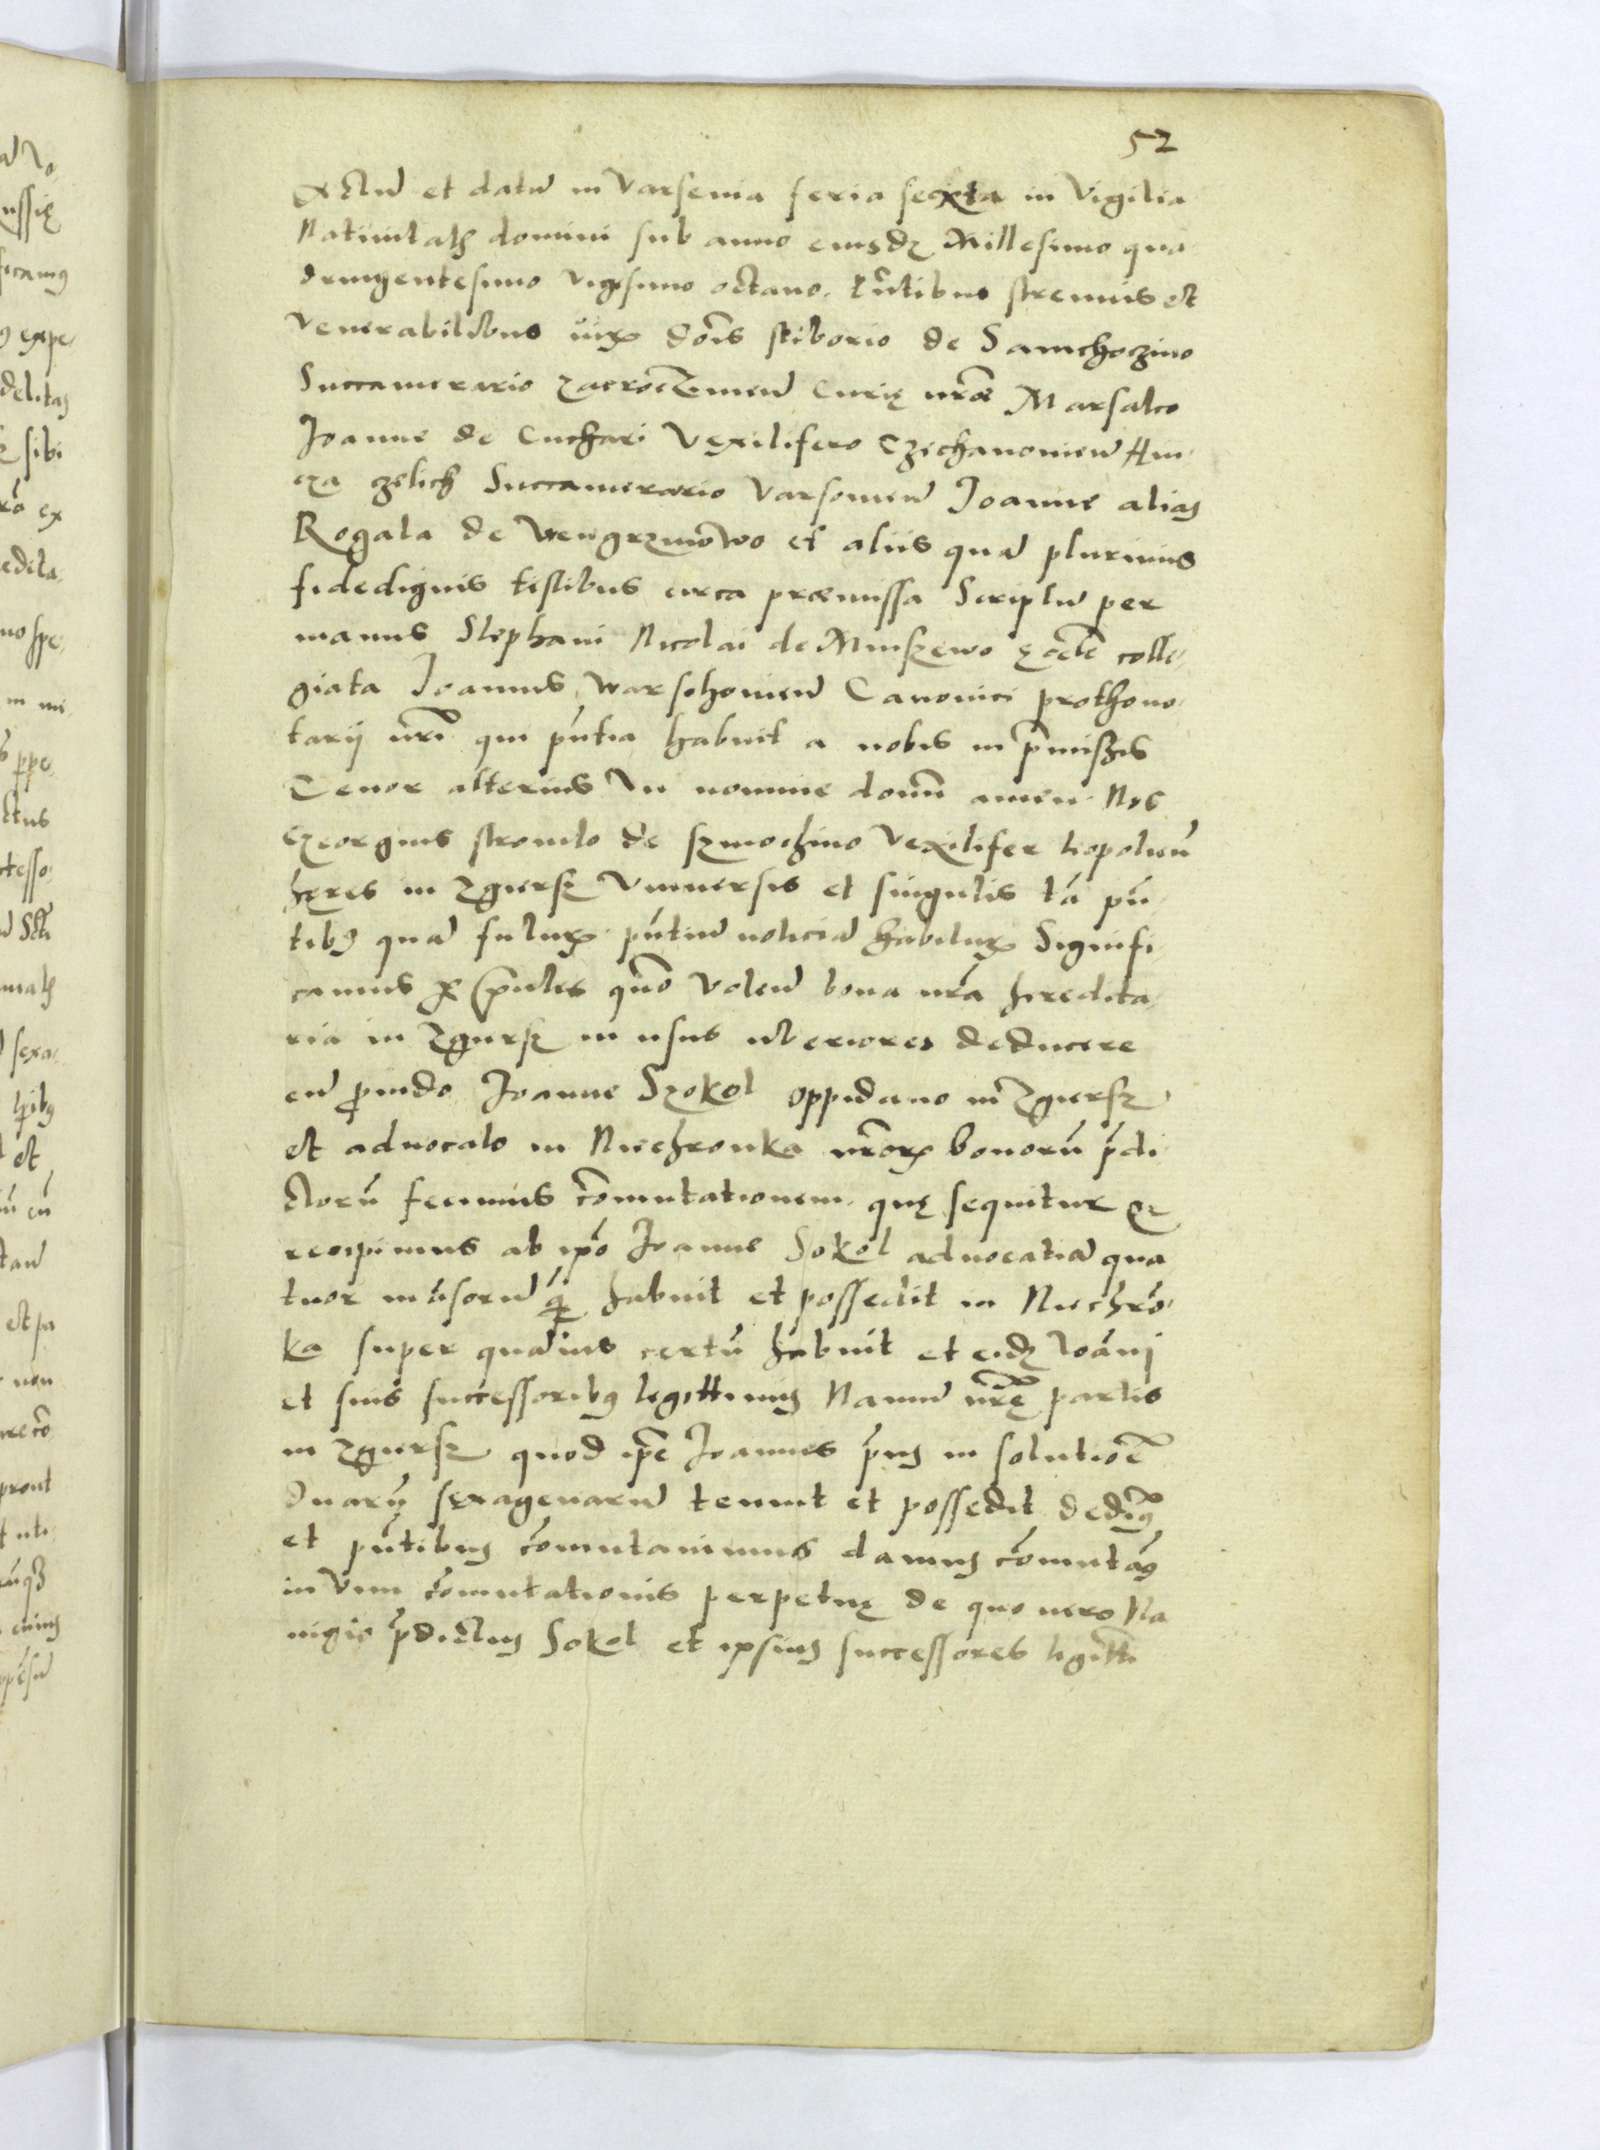 52
Actum et datum in Varsevia feria sexta in Vigilia
Natiuitatis domini sub anno eiusdem Millesimo qua
dringentesimo vigesimo octauo. Pntibus strenuis et
venerabilibus viris dnis stiborio de Samchoczino
Succamerario Zacroczimen Curię nrae Marsalco
Joanne de Cuchari Vexilifero Czichanonien Hin
cza czelich Succamerario Varsouien Joanne alias
Rogala de Wengrzinowo et aliis quam plurimis
fidedignis testibus circa praemissa Scriptum per
manus Stephani Nicolai de Minszewo ecclie colle,
giata Joannis Warschouien Canonici prothono,
tarij nri qui pntia habuit a nobis in pmiszis
Tenor alterius In nomine domni amen Nos
Georgius stromilo de szmoszino Vexilifer liopolien
hęres in Zgiersz Vniuersis et singulis tam pn,
tibus quam futuris pntium noticiam habituris Signifi,
camus per pntes quo volen bona nra heredita,
ria in Zgiersz in usus uberiores deducere
cum prouido Joanne Szokol oppidano in Zgiersz
et aduocato in Niechronka nrorum bonorum pdi
ctorum fecimus comutationem quę sequitur
recipimus ab ipso Joanne Sokol aduocatiam qua
tuor mansorum quam habuit et possedit in Niechro,
ka super quam ius certum habuit et eidem Joanni
et suis successoribus legittimis Nauim nrę partis
in Zgiersz quod ipse Joannes prius in solutione
duarum sexagenarum tenuit et possedit dedimus
et pntibus comutauimus damus comutamus
in Vim comutationis perpetuę de quo vero Na
uigio pdictus Sokol et ipsius successores legitti